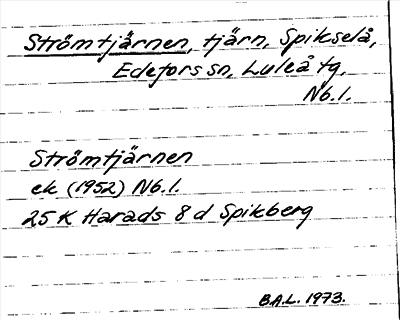 Strömtjärnen, tjärn, Spikselå,
Edefors sn, Luleå tg.
Nb.1.
Strömtjärnen
ek (1952) Nb.1.
25 K Harads 8 d Spikberg
B.A.L. 1973.